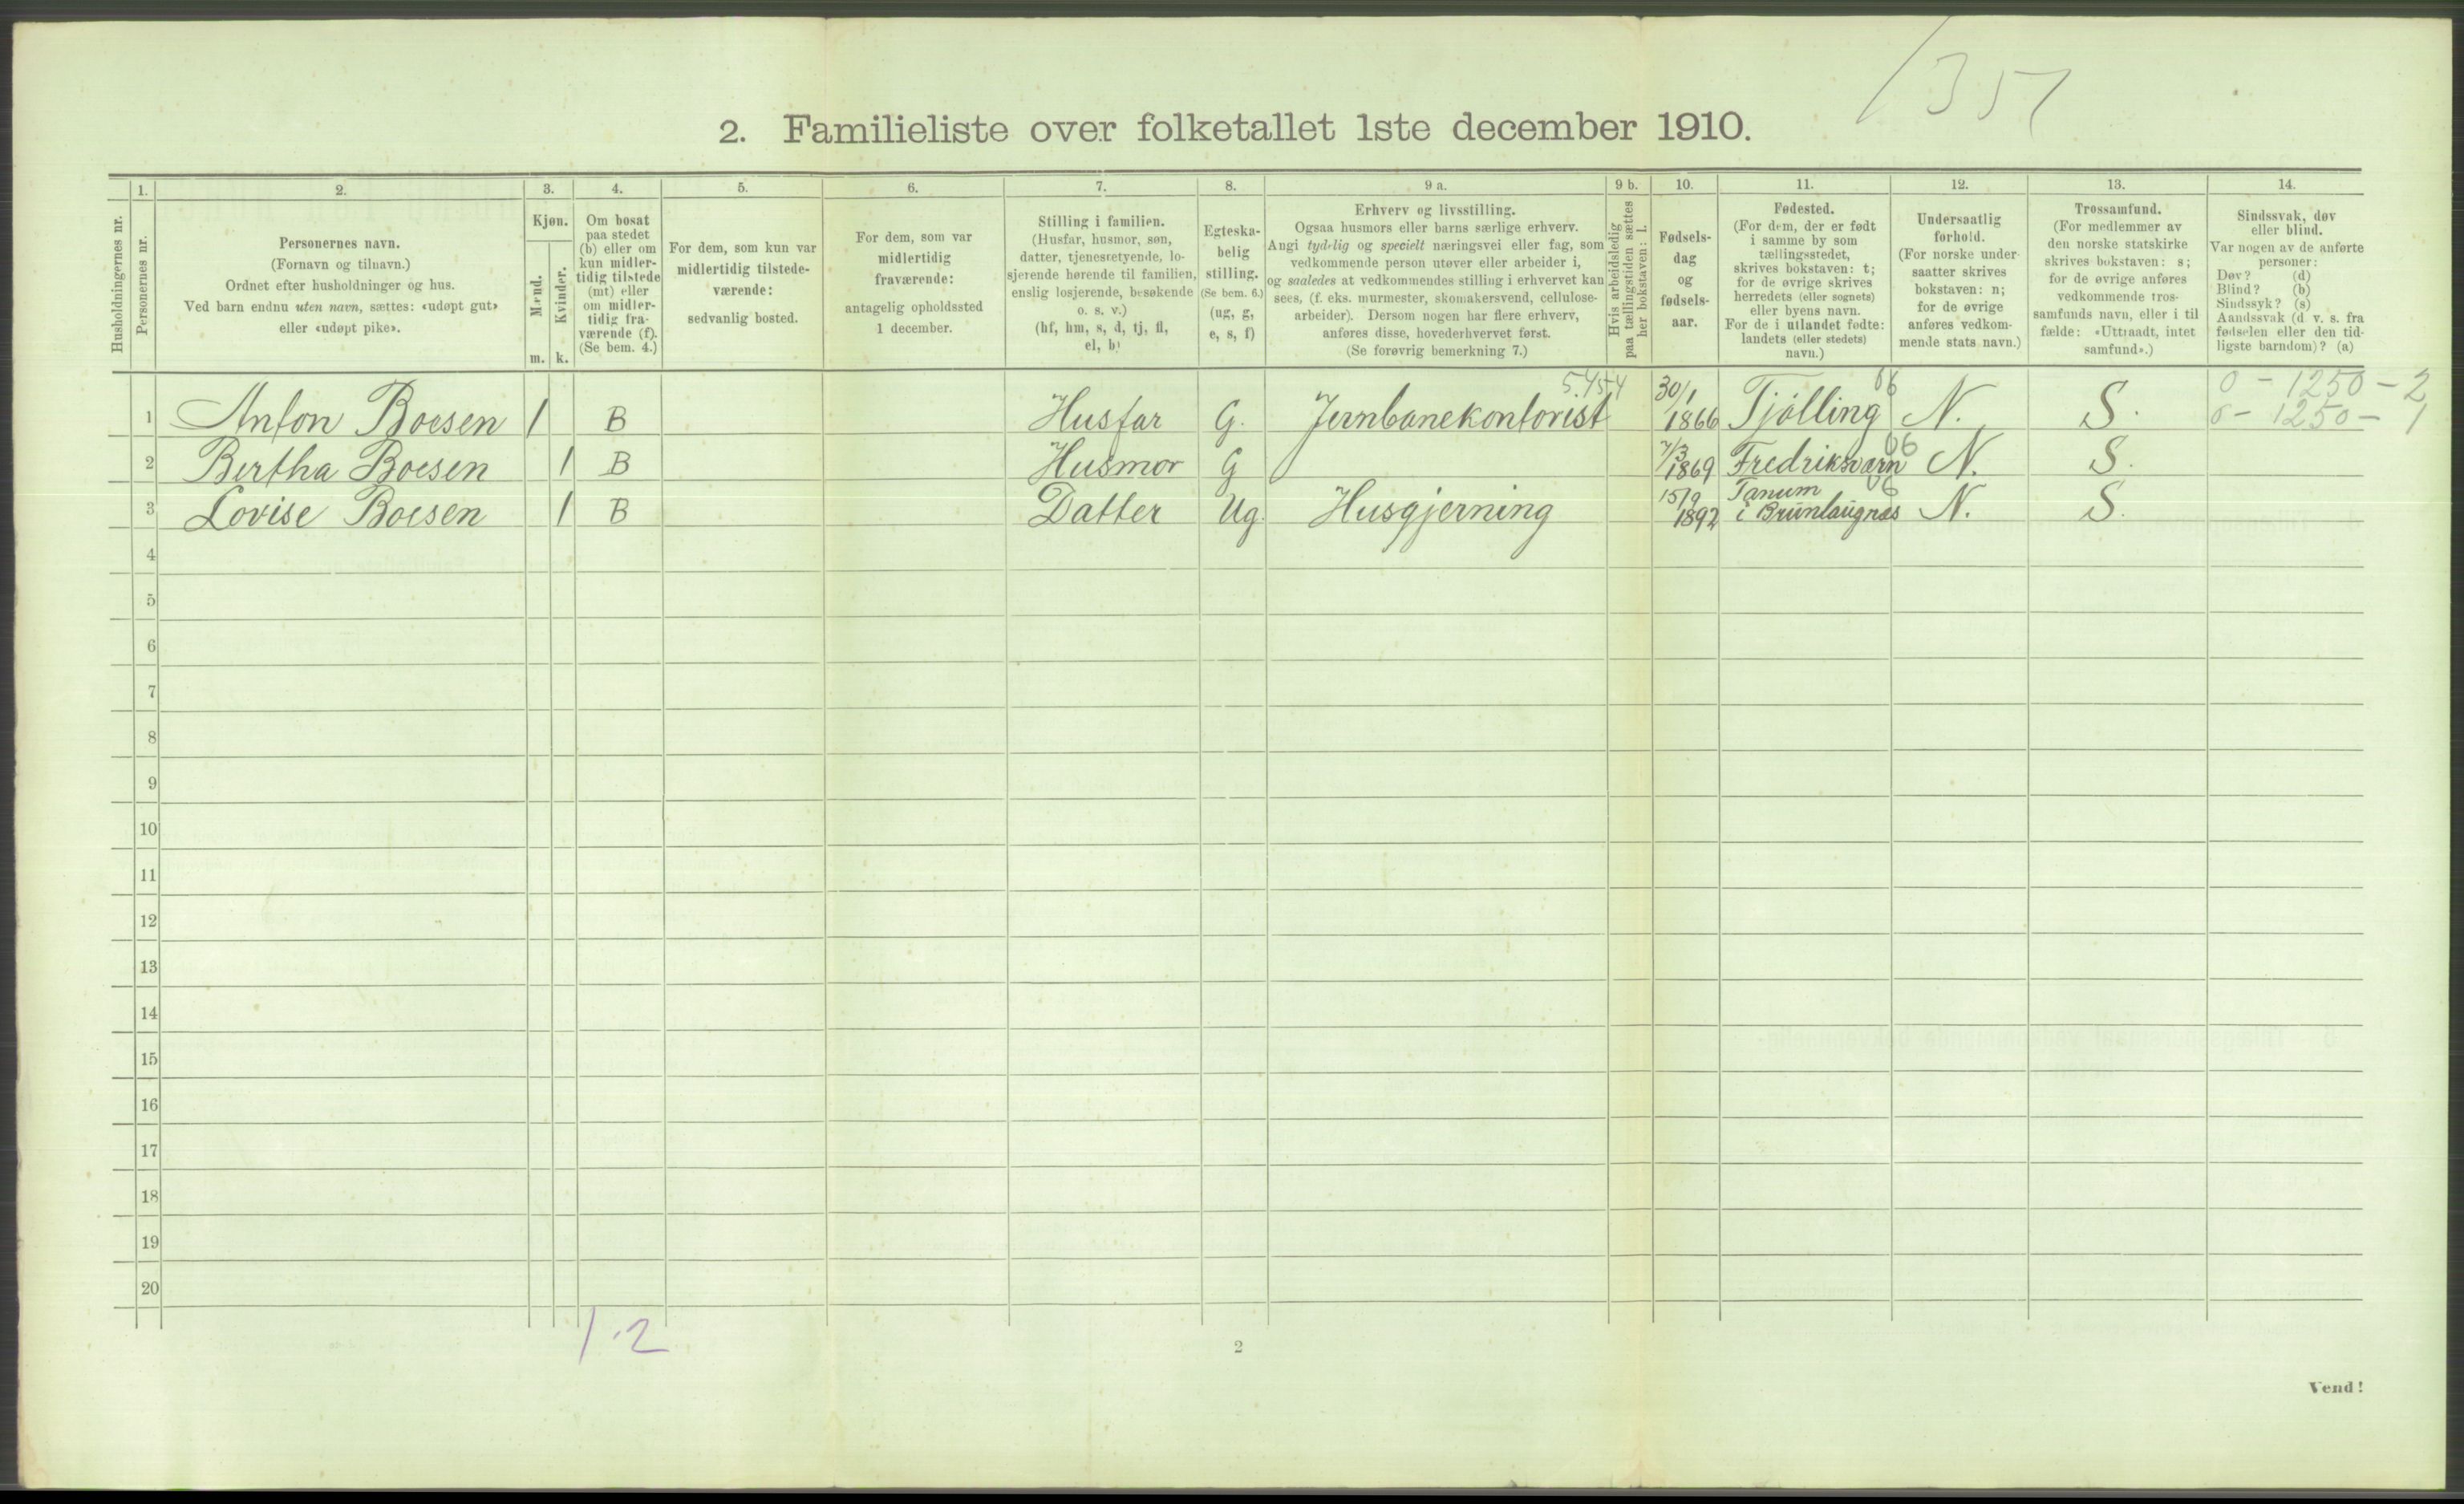 1351
2. Familieliste over folketallet 1ste december 1910.
1. 2. 3. 4. 5. 6. 7. 8. 9 a. 9 b. 10. 11. 12. 13. 14.
Husholdningernes nr.
Personernes nr.
Personernes navn.
(Fornavn og tilnavn.)
Ordnet efter husholdninger og hus.
Ved barn endnu uten navn, sættes: «udøpt gut»
eller «udøpt pike».
Kjøn.
Mænd.
Kvinder.
m. k.
Om bosat
paa stedet
(b) eller om
kun midler-
tidig tilstede
(mt) eller
om midler-
tidig fra-
værende (f).
(Se bem. 4.)
For dem, som kun var
midlertidig tilstede-
værende:
sedvanlig bosted.
For dem, som var
midlertidig
fraværende:
antagelig opholdssted
1 december.
Stilling i familien.
(Husfar, husmor, søn,
datter, tjenestetyende, lo-
sjerende hørende til familien,
enslig losjerende, besøkende
o. s. v.)
(hf, hm, s, d, tj, fl,
el, b)
Egteska-
belig
stilling.
(Se bem. 6.)
(ug, g,
e, s, f)
Erhverv og livsstilling.
Ogsaa husmors eller barns særlige erhverv.
Angi tydelig og specielt næringsvei eller fag, som
vedkommende person utøver eller arbeider i,
og saaledes at vedkommendes stilling i erhvervet kan
sees, (f. eks. murmester, skomakersvend, cellulose-
arbeider). Dersom nogen har flere erhverv,
anføres disse, hovederhvervet først.
(Se forøvrig bemerkning 7.)
Hvis arbeidsledig
paa tællingstiden sættes
her bokstaven: l.
Fødsels-
dag
og
fødsels-
aar.
Fødested.
(For dem, der er født
i samme by som
tællingsstedet,
skrives bokstaven: t;
for de øvrige skrives
herredets (eller sognets)
eller byens navn.
For de i utlandet fødte:
landets (eller stedets)
navn.)
Undersaatlig
forhold.
(For norske under-
saatter skrives
bokstaven: n;
for de øvrige
anføres vedkom-
mende stats navn.)
Trossamfund.
(For medlemmer av
den norske statskirke
skrives bokstaven: s;
for de øvrige anføres
vedkommende tros-
samfunds navn, eller i til-
fælde: «Uttraadt, intet
samfund».)
Sindssvak, døv
eller blind.
Var nogen av de anførte
personer:
Døv? (d)
Blind? (b)
Sindssyk? (s)
Aandssvak (d. v. s. fra
fødselen eller den tid-
ligste barndom)? (a)
5454 66 0 - 1250 - 2
1 Anton Boesen 1 B Husfar G. Jernbanekontorist 30/1 1866 Tjølling N. S. 0 - 1250 - 1
2 Bertha Boesen 1 B Husmor G 7/3 1869 Fredriksværn 66 N. S.
3 Lovise Boesen 1 B Datter Ug. Husgjerning 15/9 1892 Tanum i Brunlaugnæs 66 N. S.
4
5
6
7
8
9
10
11
12
13
14
15
16
17
18
19
20
1 . 2
2
Vend!